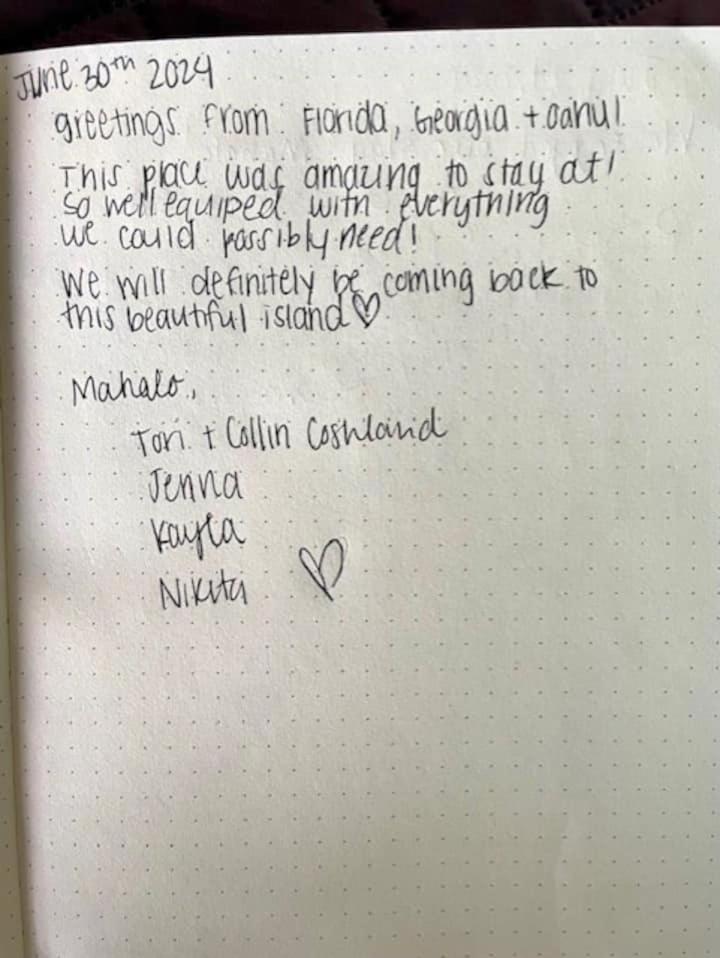 June 30th 2024
greetings from Florida, Georgia + Oahu!
This place was amazing to stay at!
So well equiped with everything
we could possibly need!
We will definitely be coming back to
this beautiful island♡
Mahalo,
Tori + Collin Coshland
Jenna
Kayla
Nikita ♡